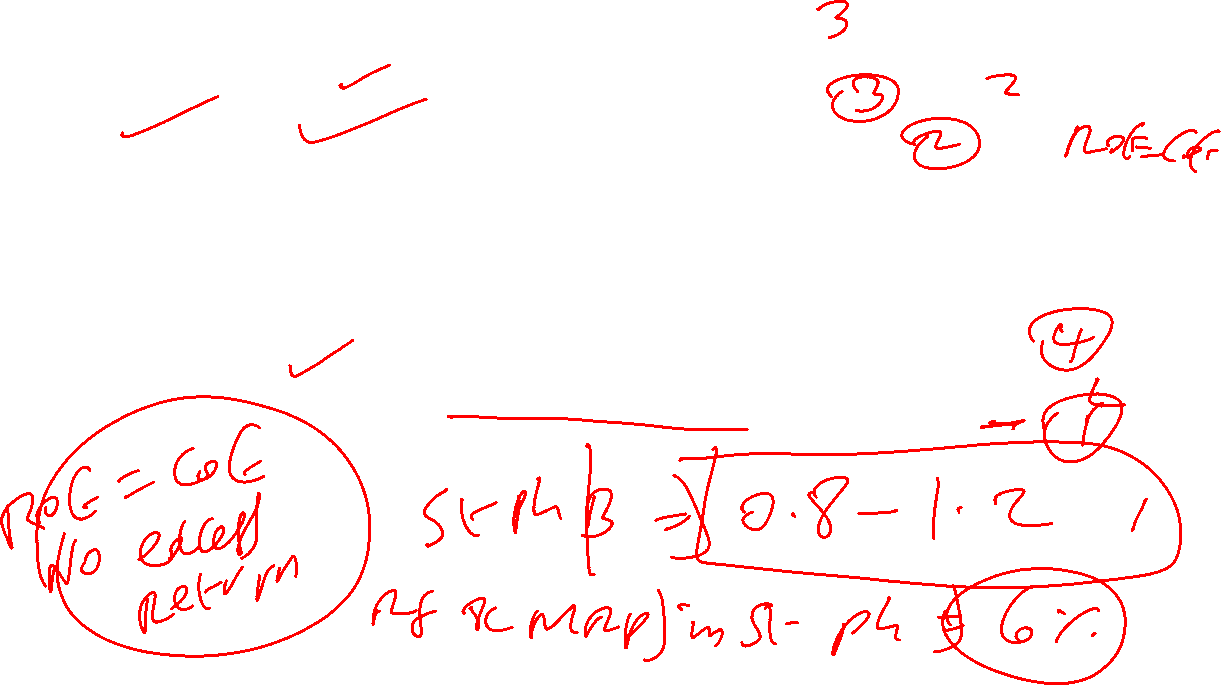 3
3 2
2 ROE=COE
4
- 1
ROE = COE
No excess
return
St ph β => 0.8 - 1.2
Rf & MRP) in St ph = 6%